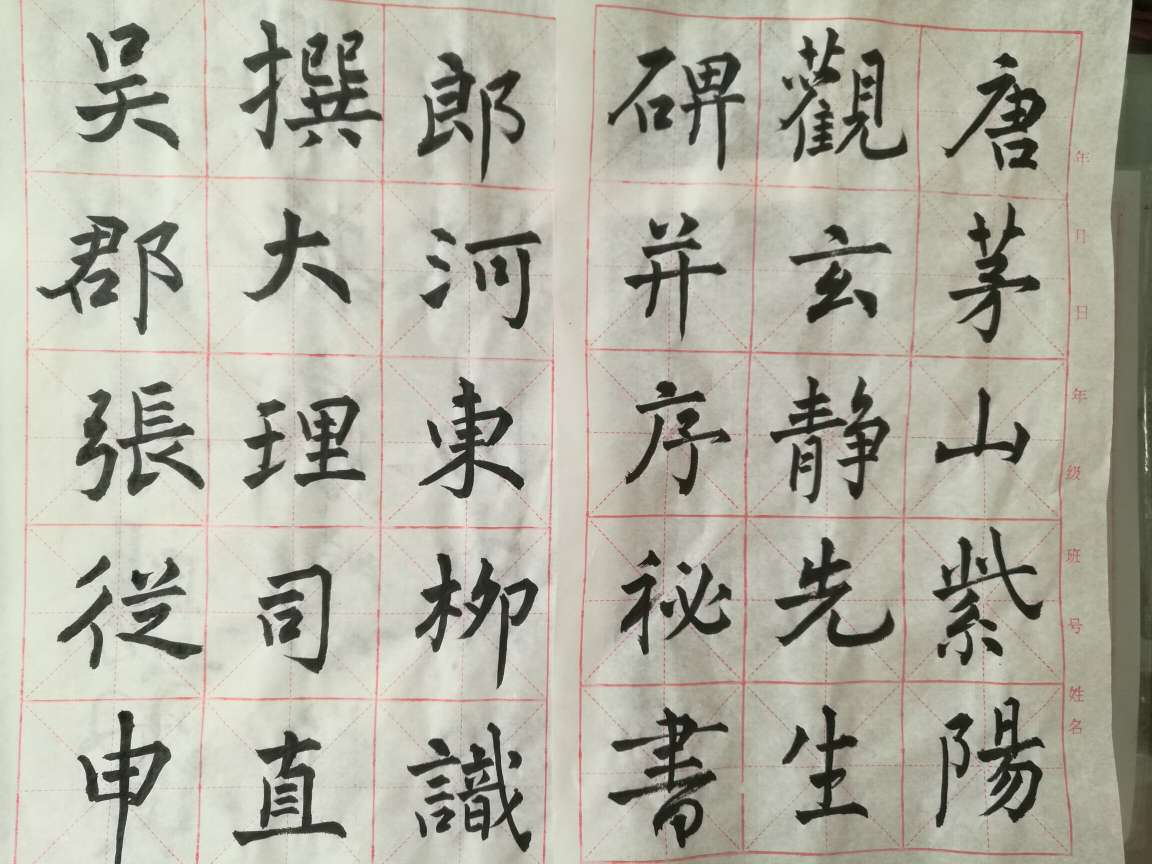 唐茅山紫陽
觀玄静先生
碑并序祕書
郎河東柳識
撰大理司直
吴郡張從申
年月日年级班号姓名